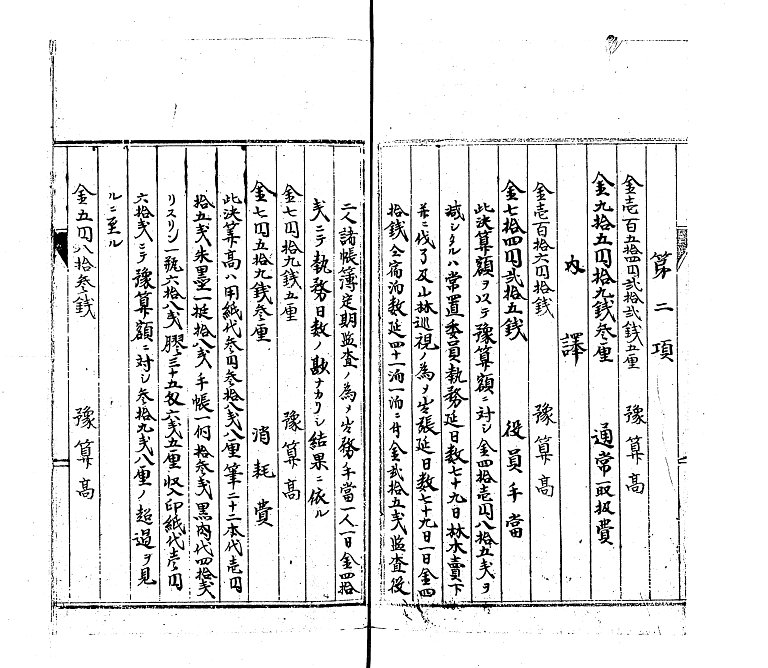 第二項
金壱百五拾四円弐拾弐銭五厘 豫算高
金九拾五円拾九銭参厘 通常取扱費
内譯
金壱百拾六円拾銭 豫算高
金七拾四円弐拾五銭 役員手當
此決算額ヲ以テ豫算額ニ対シ金四拾壱円八拾五戋ヲ
减シタルハ常置委員執務延日数七十九日林木賣下
并ニ伐了及山林巡視ノ為メ出張延日数七十九日一日金四
拾銭仝宿泊数延四十一泊一泊ニ付金弐拾五戋監査役
二人諸帳簿定期監査ノ為メ出務手當一人一日金四拾
戋ニテ執務日数ノ尠ナカリシ結果ニ依ル
金七円拾九銭五厘 豫算高
金七円五拾九銭参厘 消耗費
此決算高ハ用紙代参円参拾八戋八厘筆二十二本代壱円
拾五戋朱墨一挺拾八戋手帳一冊拾参戋黒肉代四拾戋
リスリン一瓶六拾八戋膠三十五匁六戋五厘収入印紙代壱円
六拾戋ニテ豫算額ニ対シ参拾九戋八厘ノ超過ヲ見
ルニ至ル
金五円八拾参銭 豫算高